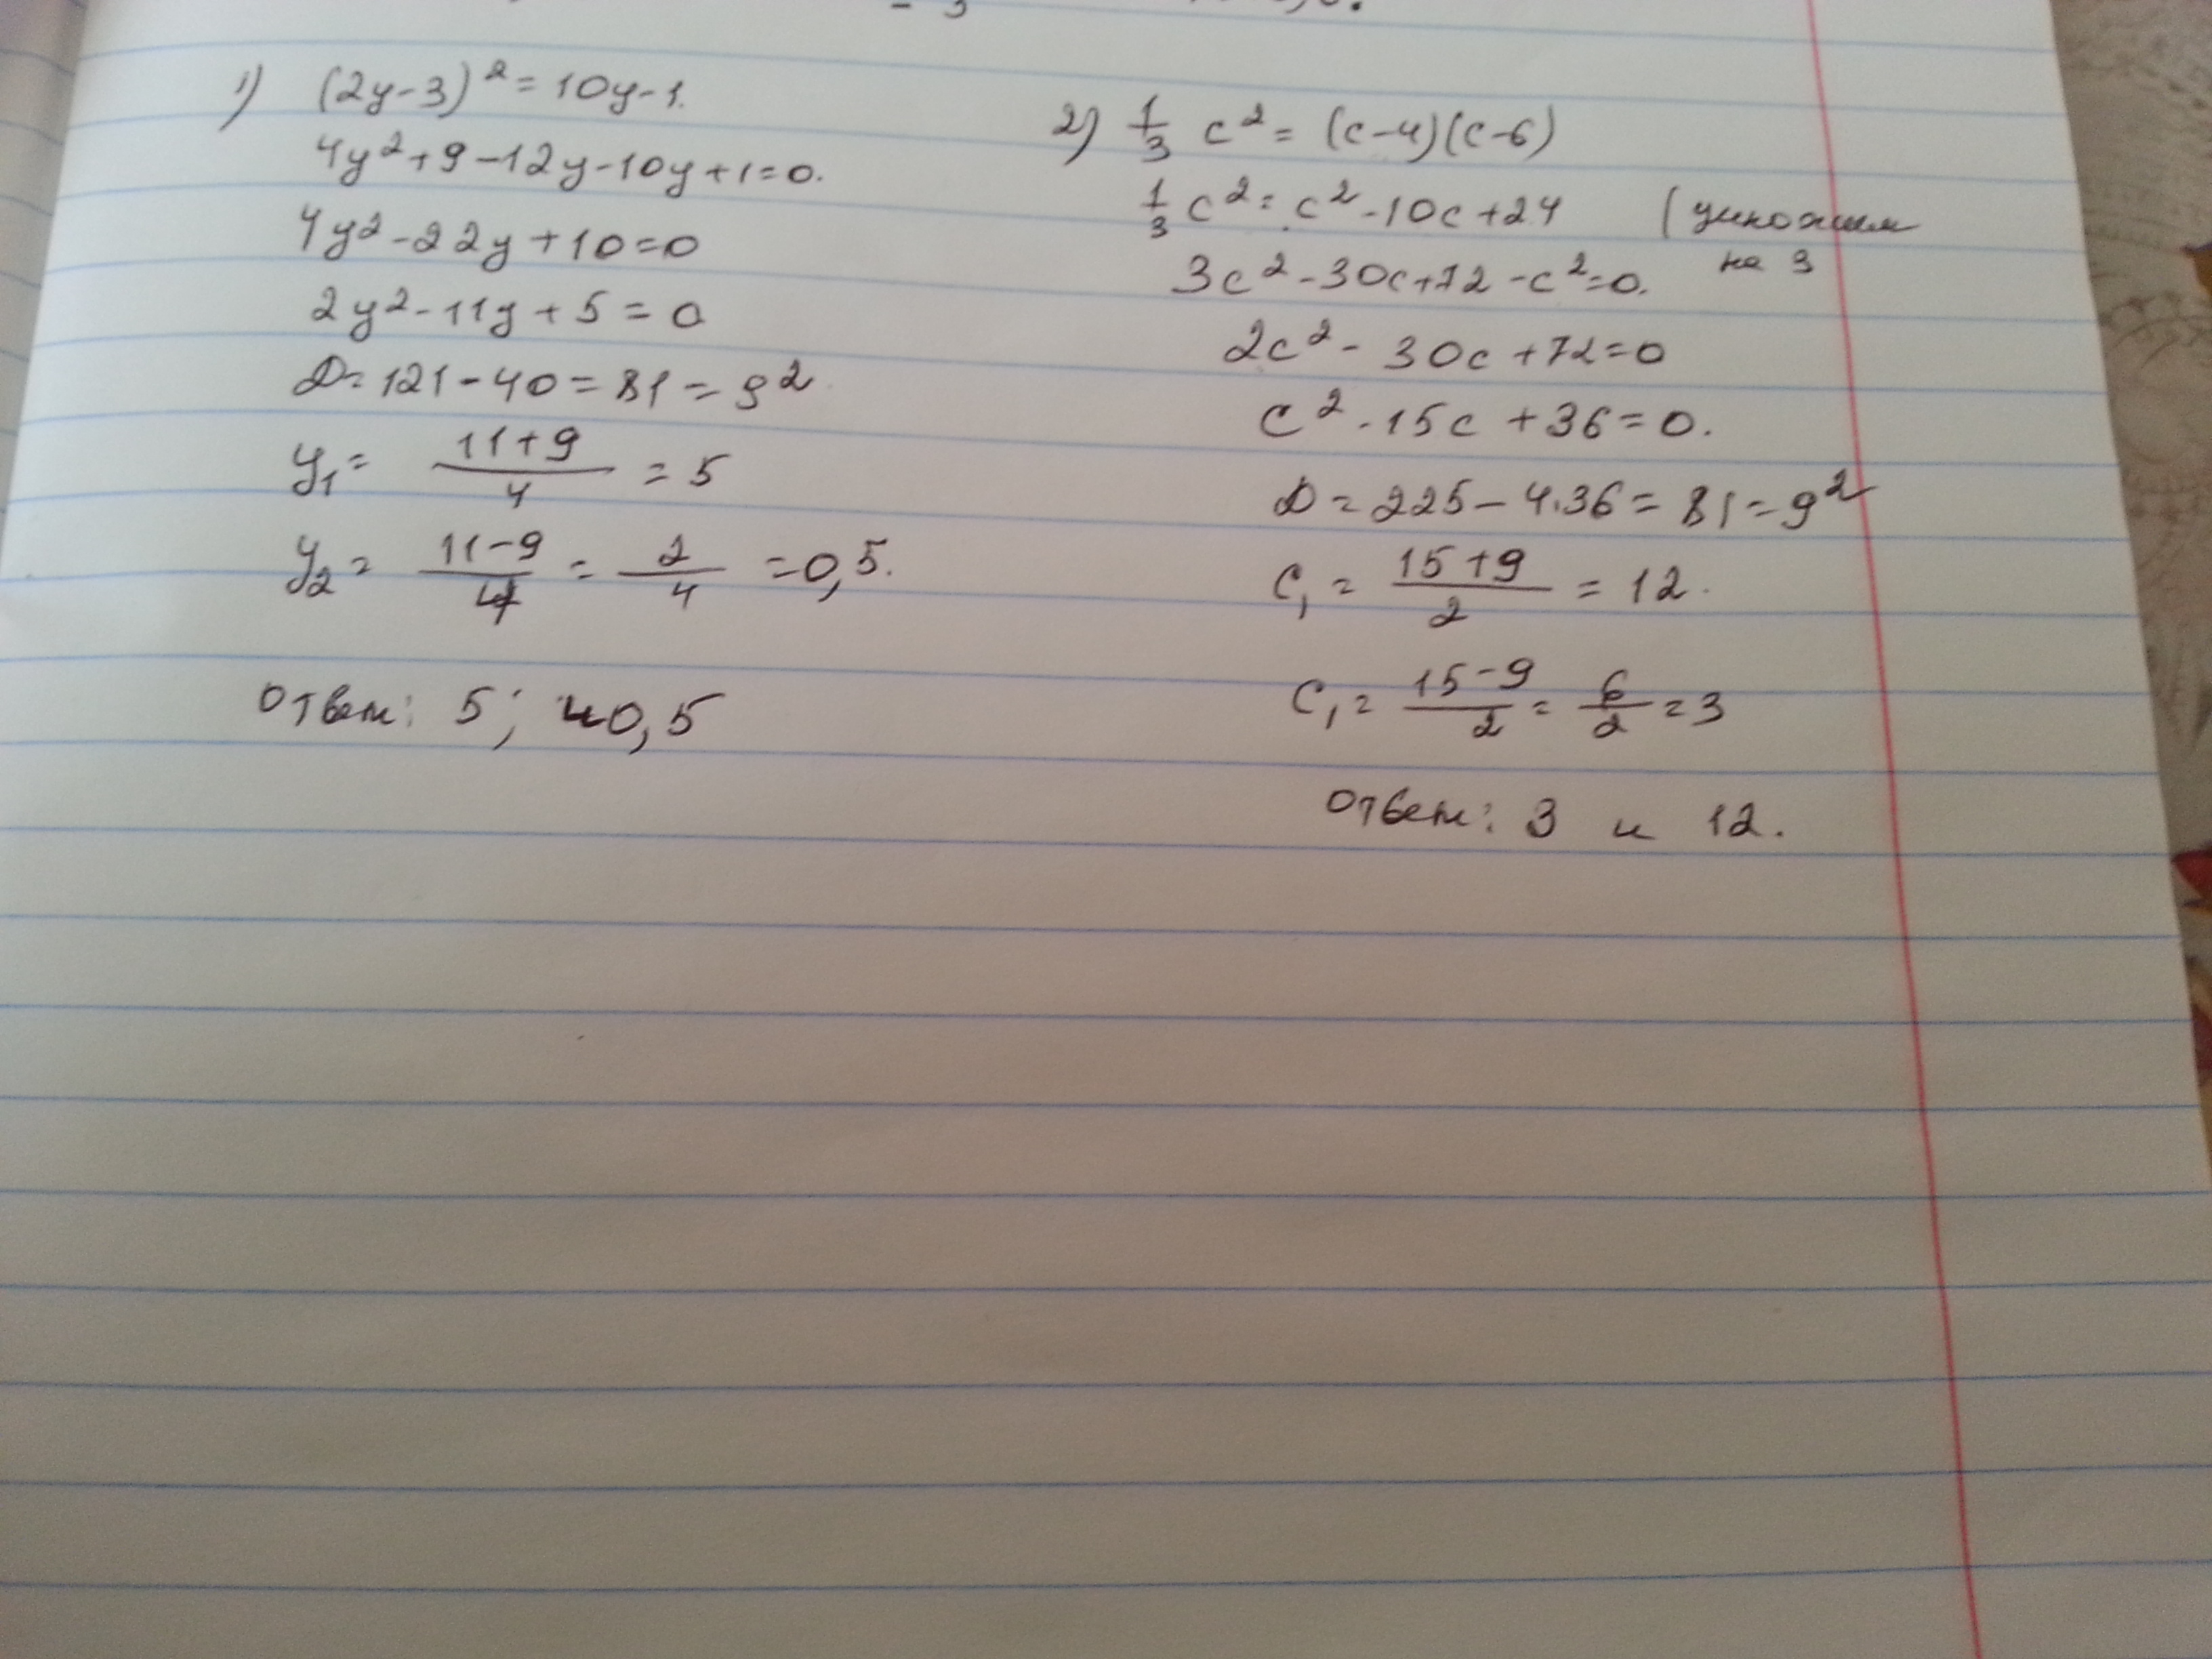 1) (2y-3)² = 10y-1.
4y²+9-12y-10y+1=0.
4y²-22y+10=0
2y²-11y+5=0
D=121-40=81=9²
y₁= (11+9)/4 = 5
y₂= (11-9)/4 = 2/4 =0,5.
Ответ: 5; 0,5
2) 1/3 c² = (c-4)(c-6)
1/3 c² = c²-10c+24 (умножим
на 3
3c²-30c+72-c²=0.
2c²-30c+72=0
c²-15c+36=0.
D=225-4·36=81=9²
c₁= (15+9)/2 = 12.
c₁= (15-9)/2 = 6/2 = 3
Ответ: 3 и 12.